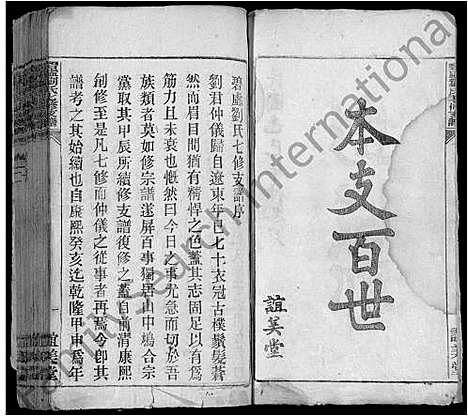 本支百世
誼美堂
碧虛劉氏七修支譜序
劉君仲儀歸自遼東年已七十衣冠古樸鬚髮蒼
然而眉目間猶有精悍之色蓋其志固足以有為
筋力且未衰也慨然曰今日之事尤急而切於吾
族類者莫如修宗譜遂屏百事獨居山中鳩合宗
黨取其甲辰所續修支譜復修之蓋自前清康熙
創修至是凡七修而仲儀之從事者再焉今卽其
譜考之其始續也自康熙癸亥迄乾隆甲申為年
一
誼美堂
FamilySearch International